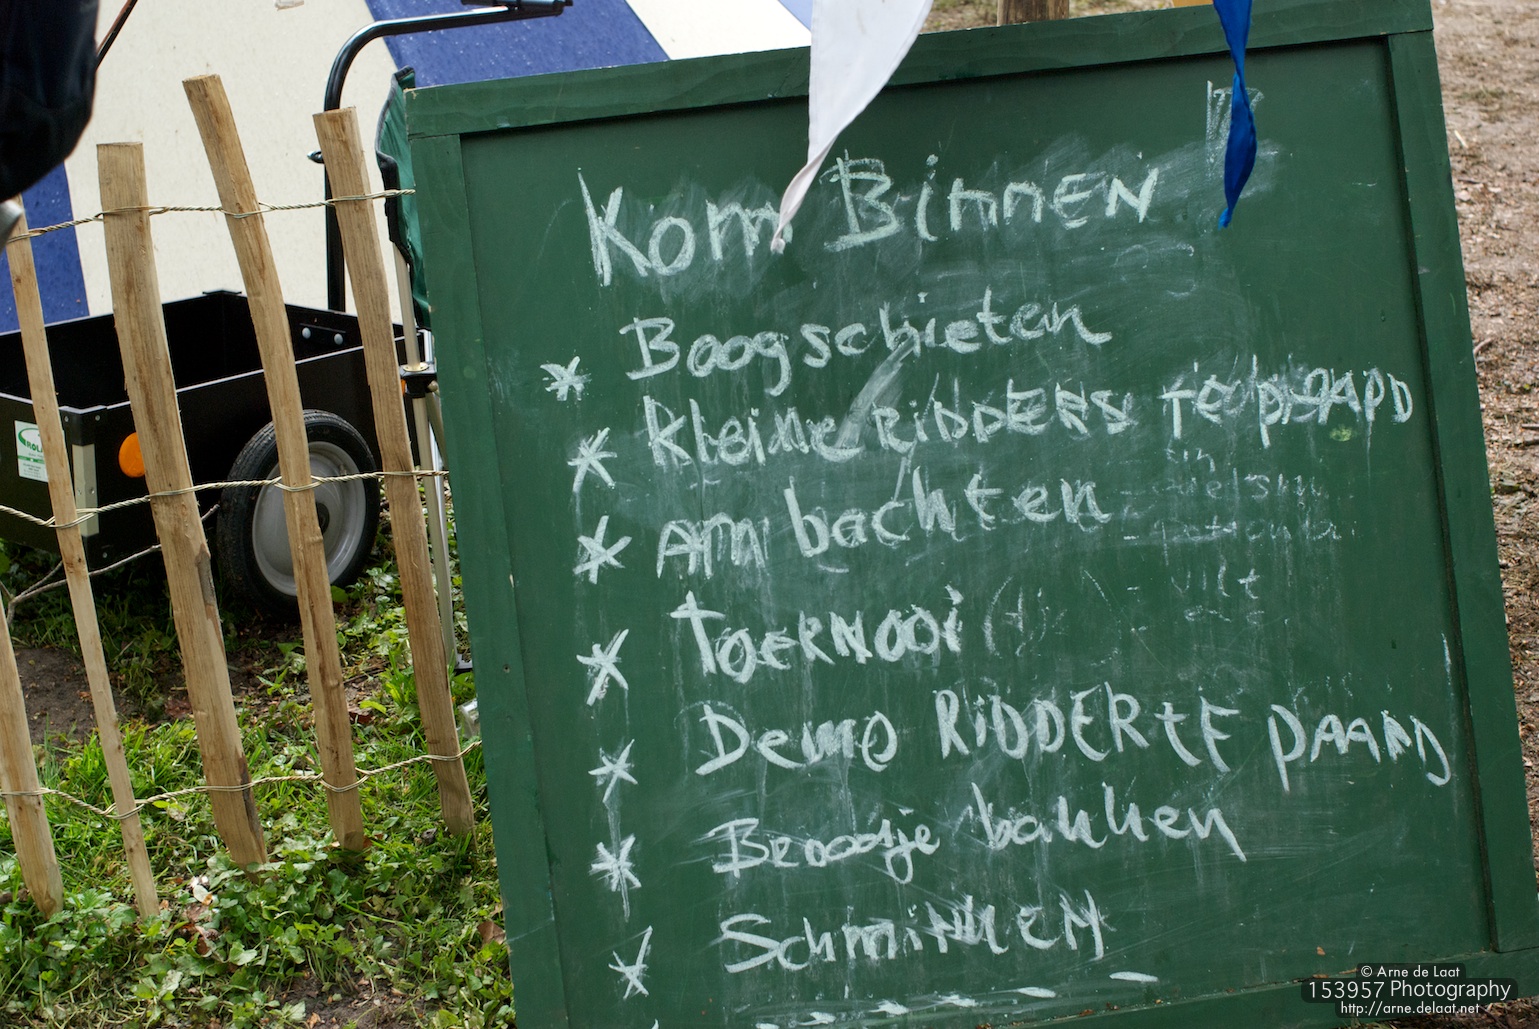 Kom BinnEN
* Boogschieten
* Kleine RiDDERS TE pAARD
* AMbachten
vilt
* ToerNooi
* Demo RiDDER tE pAARD
* Broodje bakken
* SchminkEN
© Arne de Laat
153957 Photography
http://arne.delaat.net